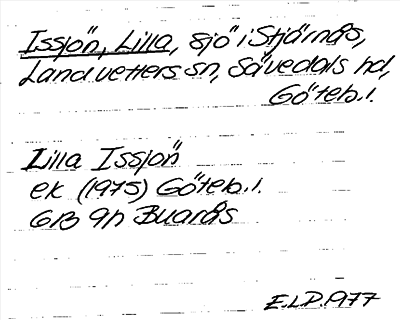 Issjön, Lilla, sjö i Stjärnås,
Landvetters sn, Sävedals hd,
Göteb.l.
Lilla Issjön
ek (1975) Göteb.l.
6B 9h Buarås
E.L.P. 1977